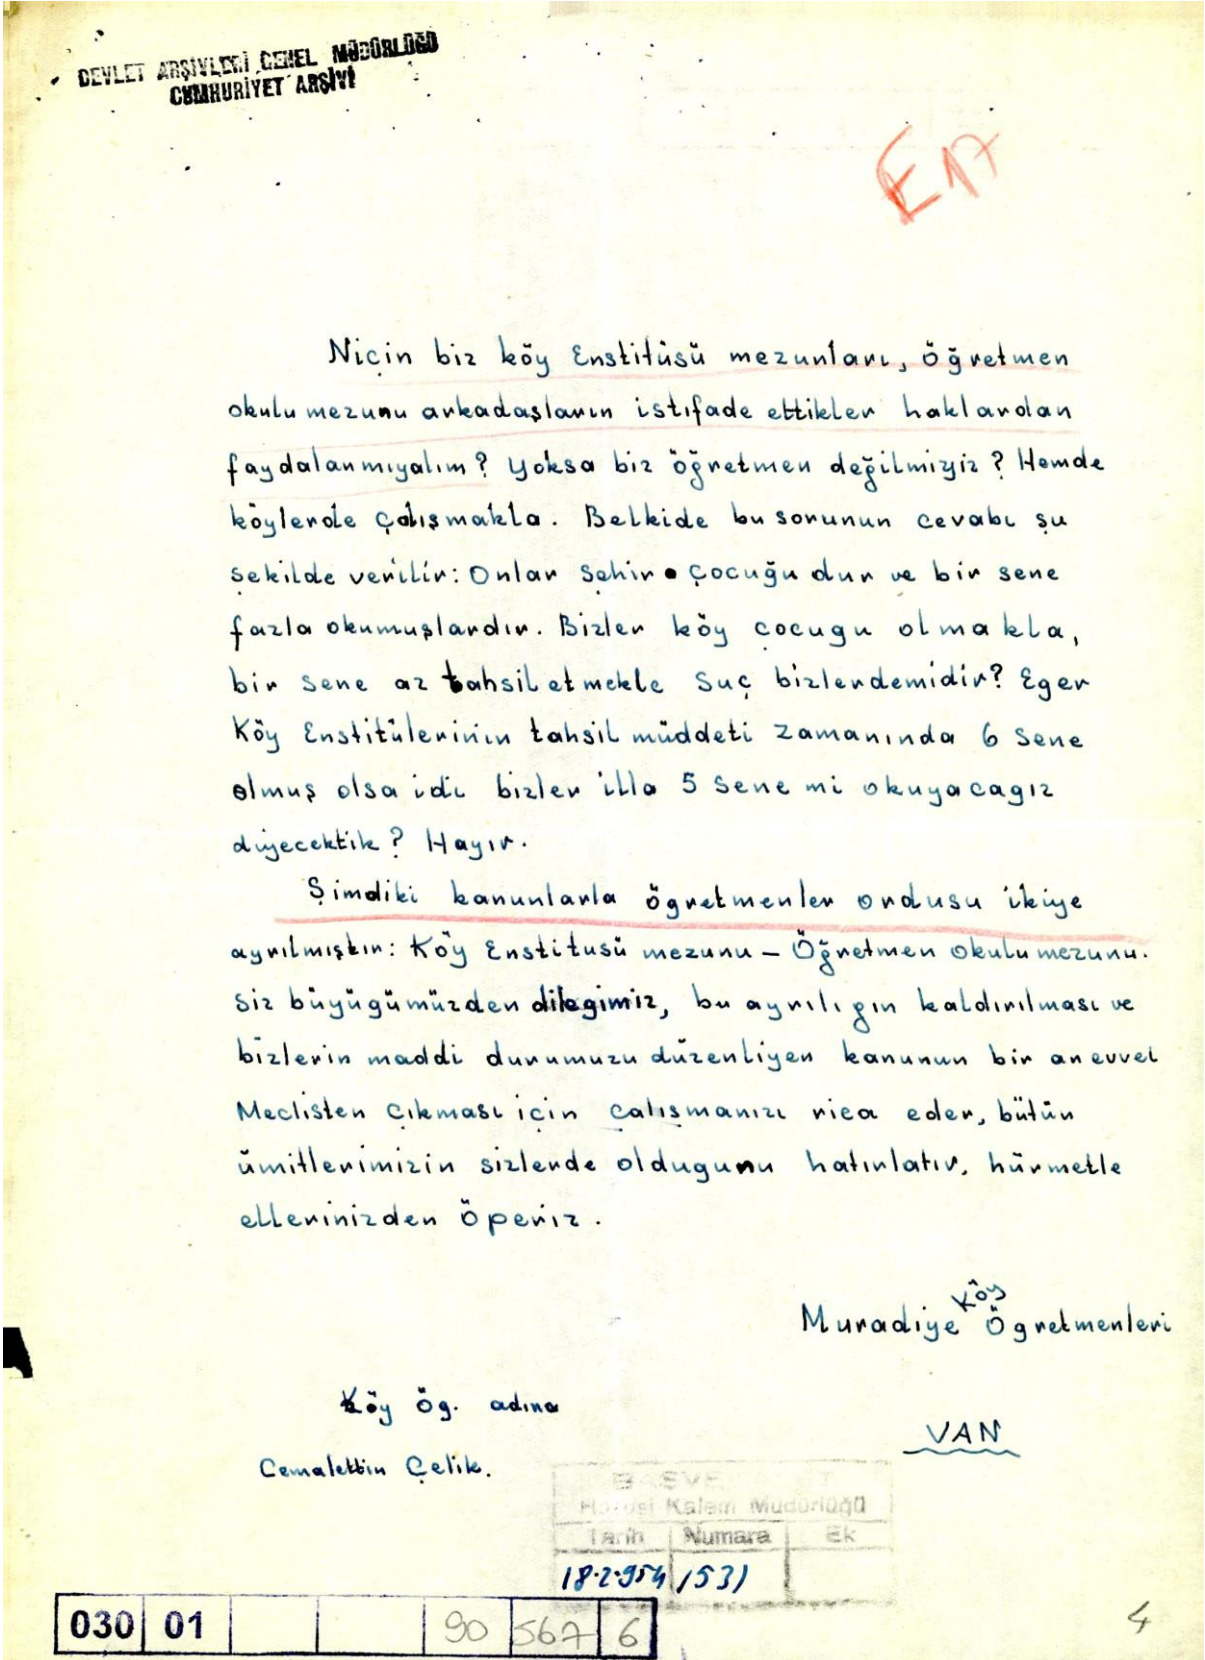 DEVLET ARŞİVLERİ GENEL MÜDÜRLÜĞÜ
CUMHURİYET ARŞİVİ
E 17
Niçin biz köy Enstitüsü mezunları, öğretmen
okulu mezunu arkadaşların istifade ettikler haklardan
faydalanmıyalım? Yoksa biz öğretmen değilmiyiz? Hemde
köylerde çalışmakla. Belkide bu sorunun cevabı şu
şekilde verilir: Onlar şehir çocuğu dur ve bir sene
fazla okumuşlardır. Bizler köy çocugu olmakla,
bir sene az tahsil etmekle suç bizlerdemidir? Eger
Köy Enstitülerinin tahsil müddeti zamanında 6 sene
olmuş olsa idi bizler illa 5 sene mi okuyacagız
diyecektik? Hayır.
Şimdiki kanunlarla ögretmenler ordusu ikiye
ayrılmıştır: Köy Enstitusü mezunu - Öğretmen okulu mezunu.
Siz büyügümüzden dilegimiz, bu ayrılıgın kaldırılması ve
bizlerin maddi durumuzu düzenliyen kanunun bir an evvel
Meclisten çıkması için çalışmanızı rica eder, bütün
ümitlerimizin sizlerde oldugunu hatırlatır, hürmetle
ellerinizden öperiz.
Köy
Muradiye Ögretmenleri
Köy ög. adına
VAN
Cemalettin Çelik.
Hususi Kalem Müdürlüğü
Tarih Numara Ek
18.2.954 1531
030 01 90 567 6
4